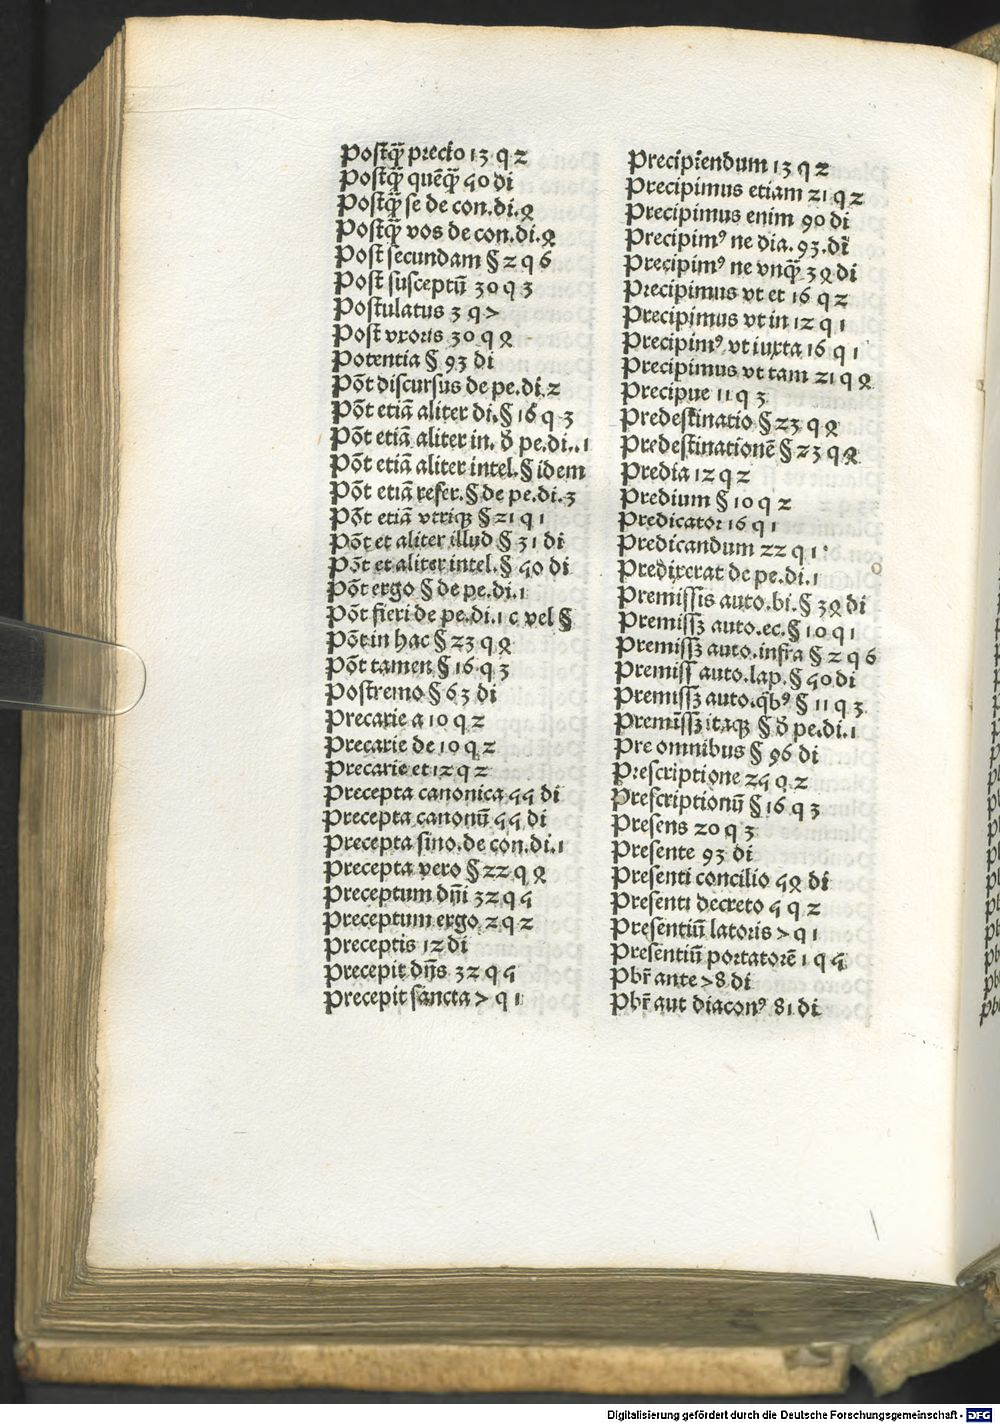 Postq̄ȝ precio 13 q 2
Postq̄ȝ quēq̄ȝ 50 di
Postq̄ȝ se de con.di.4
Postq̄ȝ vos de con.di.4
Post secundam § 2 q 6
Post susceptū 30 q 3
Postulatus 3 q 7
Post vxoris 30 q 4
Potentia § 93 di
Pōt discursus de pe.di.2
Pōt etiā aliter di.§ 16 q 3
Pōt etiā aliter in. ď pe.di..1
Pōt etiā aliter intel.§ idem
Pōt etiā refer.§ de pe.di.3
Pōt etiā vtriqꝫ § 21 q 1
Pōt et aliter illud § 31 di
Pōt et aliter intel.§ 50 di
Pōt ergo § de pe.di.1
Pōt fieri de pe.di.1 c vel §
Pōt in hac § 23 q 4
Pōt tamen § 16 q 3
Postremo § 63 di
Precarie a 10 q 2
Precarie de 10 q 2
Precarie et 12 q 2
Precepta canonica 55 di
Precepta canonū 55 di
Precepta sino.de con.di.1
Precepta vero § 22 q 4
Preceptum dn̄i 32 q 5
Preceptum ergo 2 q 2
Preceptis 12 di
Precepit dn̄s 32 q 5
Precepit sancta 7 q 1
Precipiendum 13 q 2
Precipimus etiam 21 q 2
Precipimus enim 90 di
Precipimꝰ ne dia. 93.di
Precipimꝰ ne vnq̄ȝ 34 di
Precipimus vt et 16 q 2
Precipimus vt in 12 q 1
Precipimꝰ vt iuxta 16 q 1
Precipimus vt tam 21 q 4
Precipue 11 q 3
Predestinatio § 23 q 4
Predestinationē § 23 q 4
Predia 12 q 2
Predium § 10 q 2
Predicator 16 q 1
Predicandum 22 q 1
Predixerat de pe.di.1
Premissis auto.bi.§ 34 di
Premissꝫ auto.ec.§ 10 q 1
Premissꝫ auto.infra § 2 q 6
Premiss auto.lap.§ 50 di
Premissꝫ auto.q̄bꝰ § 11 q 3
Premissꝫ itaqꝫ § ď pe.di.1
Pre omnibus § 96 di
Prescriptione 25 q 2
Prescriptionū § 16 q 3
Presens 20 q 3
Presente 93 di
Presenti concilio 54 di
Presenti decreto 5 q 2
Presentiū latoris 7 q 1
Presentiū portatorē 1 q 5
Pbr̄ ante 78 di
Pbr̄ aut diaconꝰ 81 di
Digitalisierung gefördert durch die Deutsche Forschungsgemeinschaft - DFG